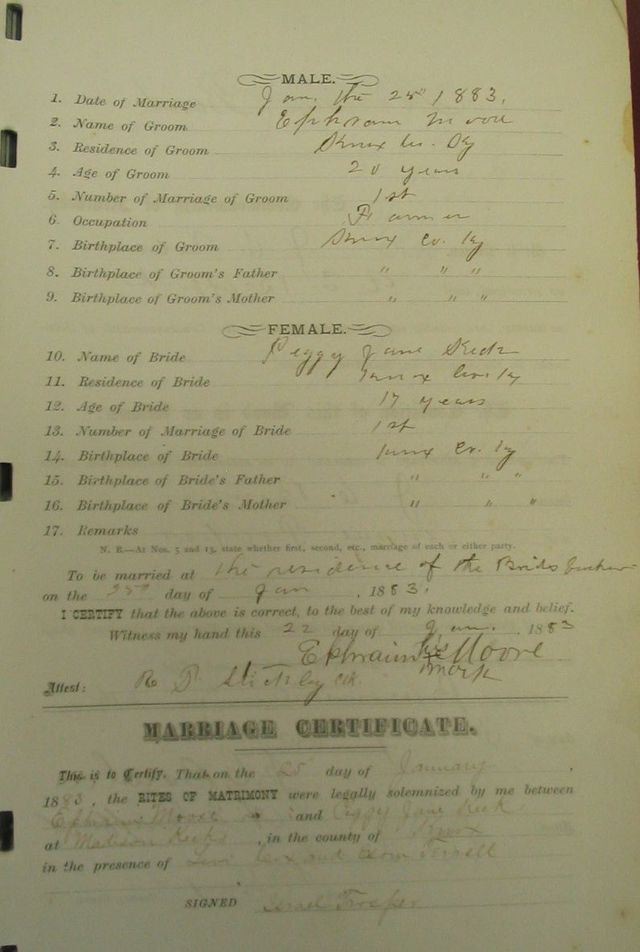 MALE.
1. Date of Marriage Jan. the 25th 1883.
2. Name of Groom Ephram Moore
3. Residence of Groom Knox Co. Ky
4. Age of Groom 20 years
5. Number of Marriage of Groom 1st
6. Occupation Farmer
7. Birthplace of Groom Knox Co. Ky
8. Birthplace of Groom's Father " " "
9. Birthplace of Groom's Mother " " "
FEMALE.
10. Name of Bride Peggy Jane Keck
11. Residence of Bride Knox Co. Ky
12. Age of Bride 17 years
13. Number of Marriage of Bride 1st
14. Birthplace of Bride Knox Co. Ky
15. Birthplace of Bride's Father " " "
16. Birthplace of Bride's Mother " " "
17. Remarks
N. B.—At Nos. 5 and 13, state whether first, second, etc., marriage of each or either party.
To be married at the residence of the Brides
on the 25th day of Jan , 1883.
I CERTIFY that the above is correct, to the best of my knowledge and belief.
Witness my hand this 22 day of Jan. , 1883
Ephraim his Moore
mark
Attest: Clk.
MARRIAGE CERTIFICATE.
This is to Certify, That on the 25 day of January
1883, the RITES OF MATRIMONY were legally solemnized by me between
Ephraim Moore and Peggy Jane Keck
at Madison Kecks , in the county of Knox
in the presence of Levi Cox and Ferrell
SIGNED Israel Trosper